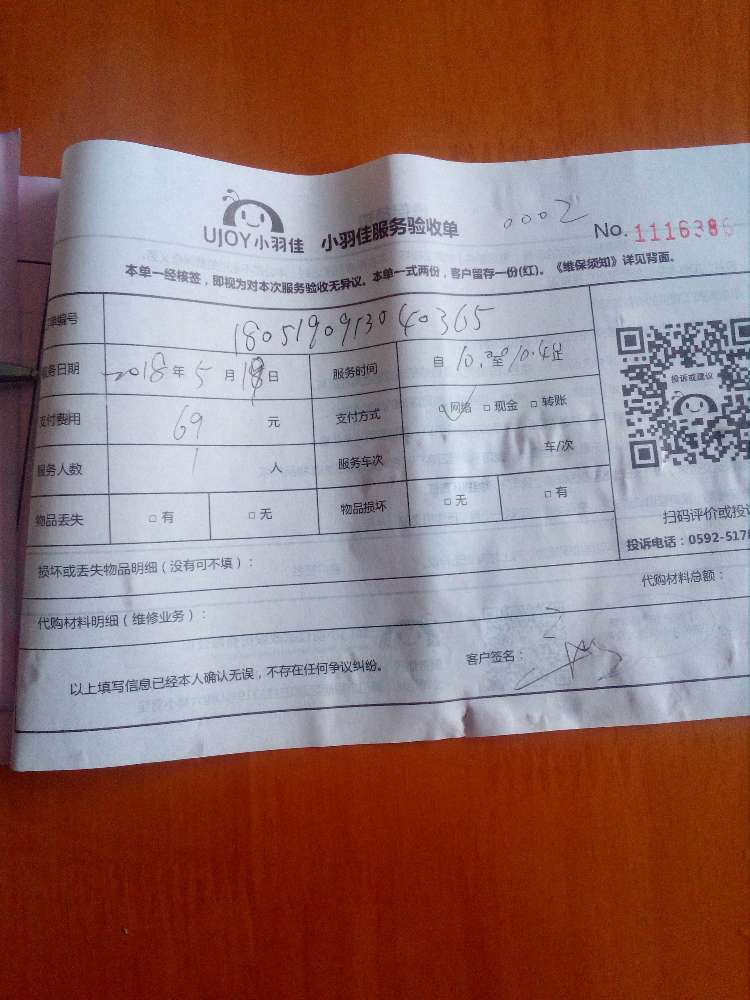 UJOY小羽佳 小羽佳服务验收单 0002 No. 1116386
本单一经核签，即视为对本次服务验收无异议。本单一式两份，客户留存一份(红)。《维保须知》详见背面。
单编号 180519091304 0365
务日期 2018年5月19日 服务时间 自10.00至10.48止
支付费用 69 元 支付方式 网络 □现金 □转账
服务人数 1 人 服务车次 车/次
物品丢失 □有 □无 物品损坏 □无 □有
投诉或建议
扫码评价或投诉
投诉电话：0592-5178
损坏或丢失物品明细（没有可不填）：
代购材料明细（维修业务）： 代购材料总额：
以上填写信息已经本人确认无误，不存在任何争议纠纷。 客户签名：